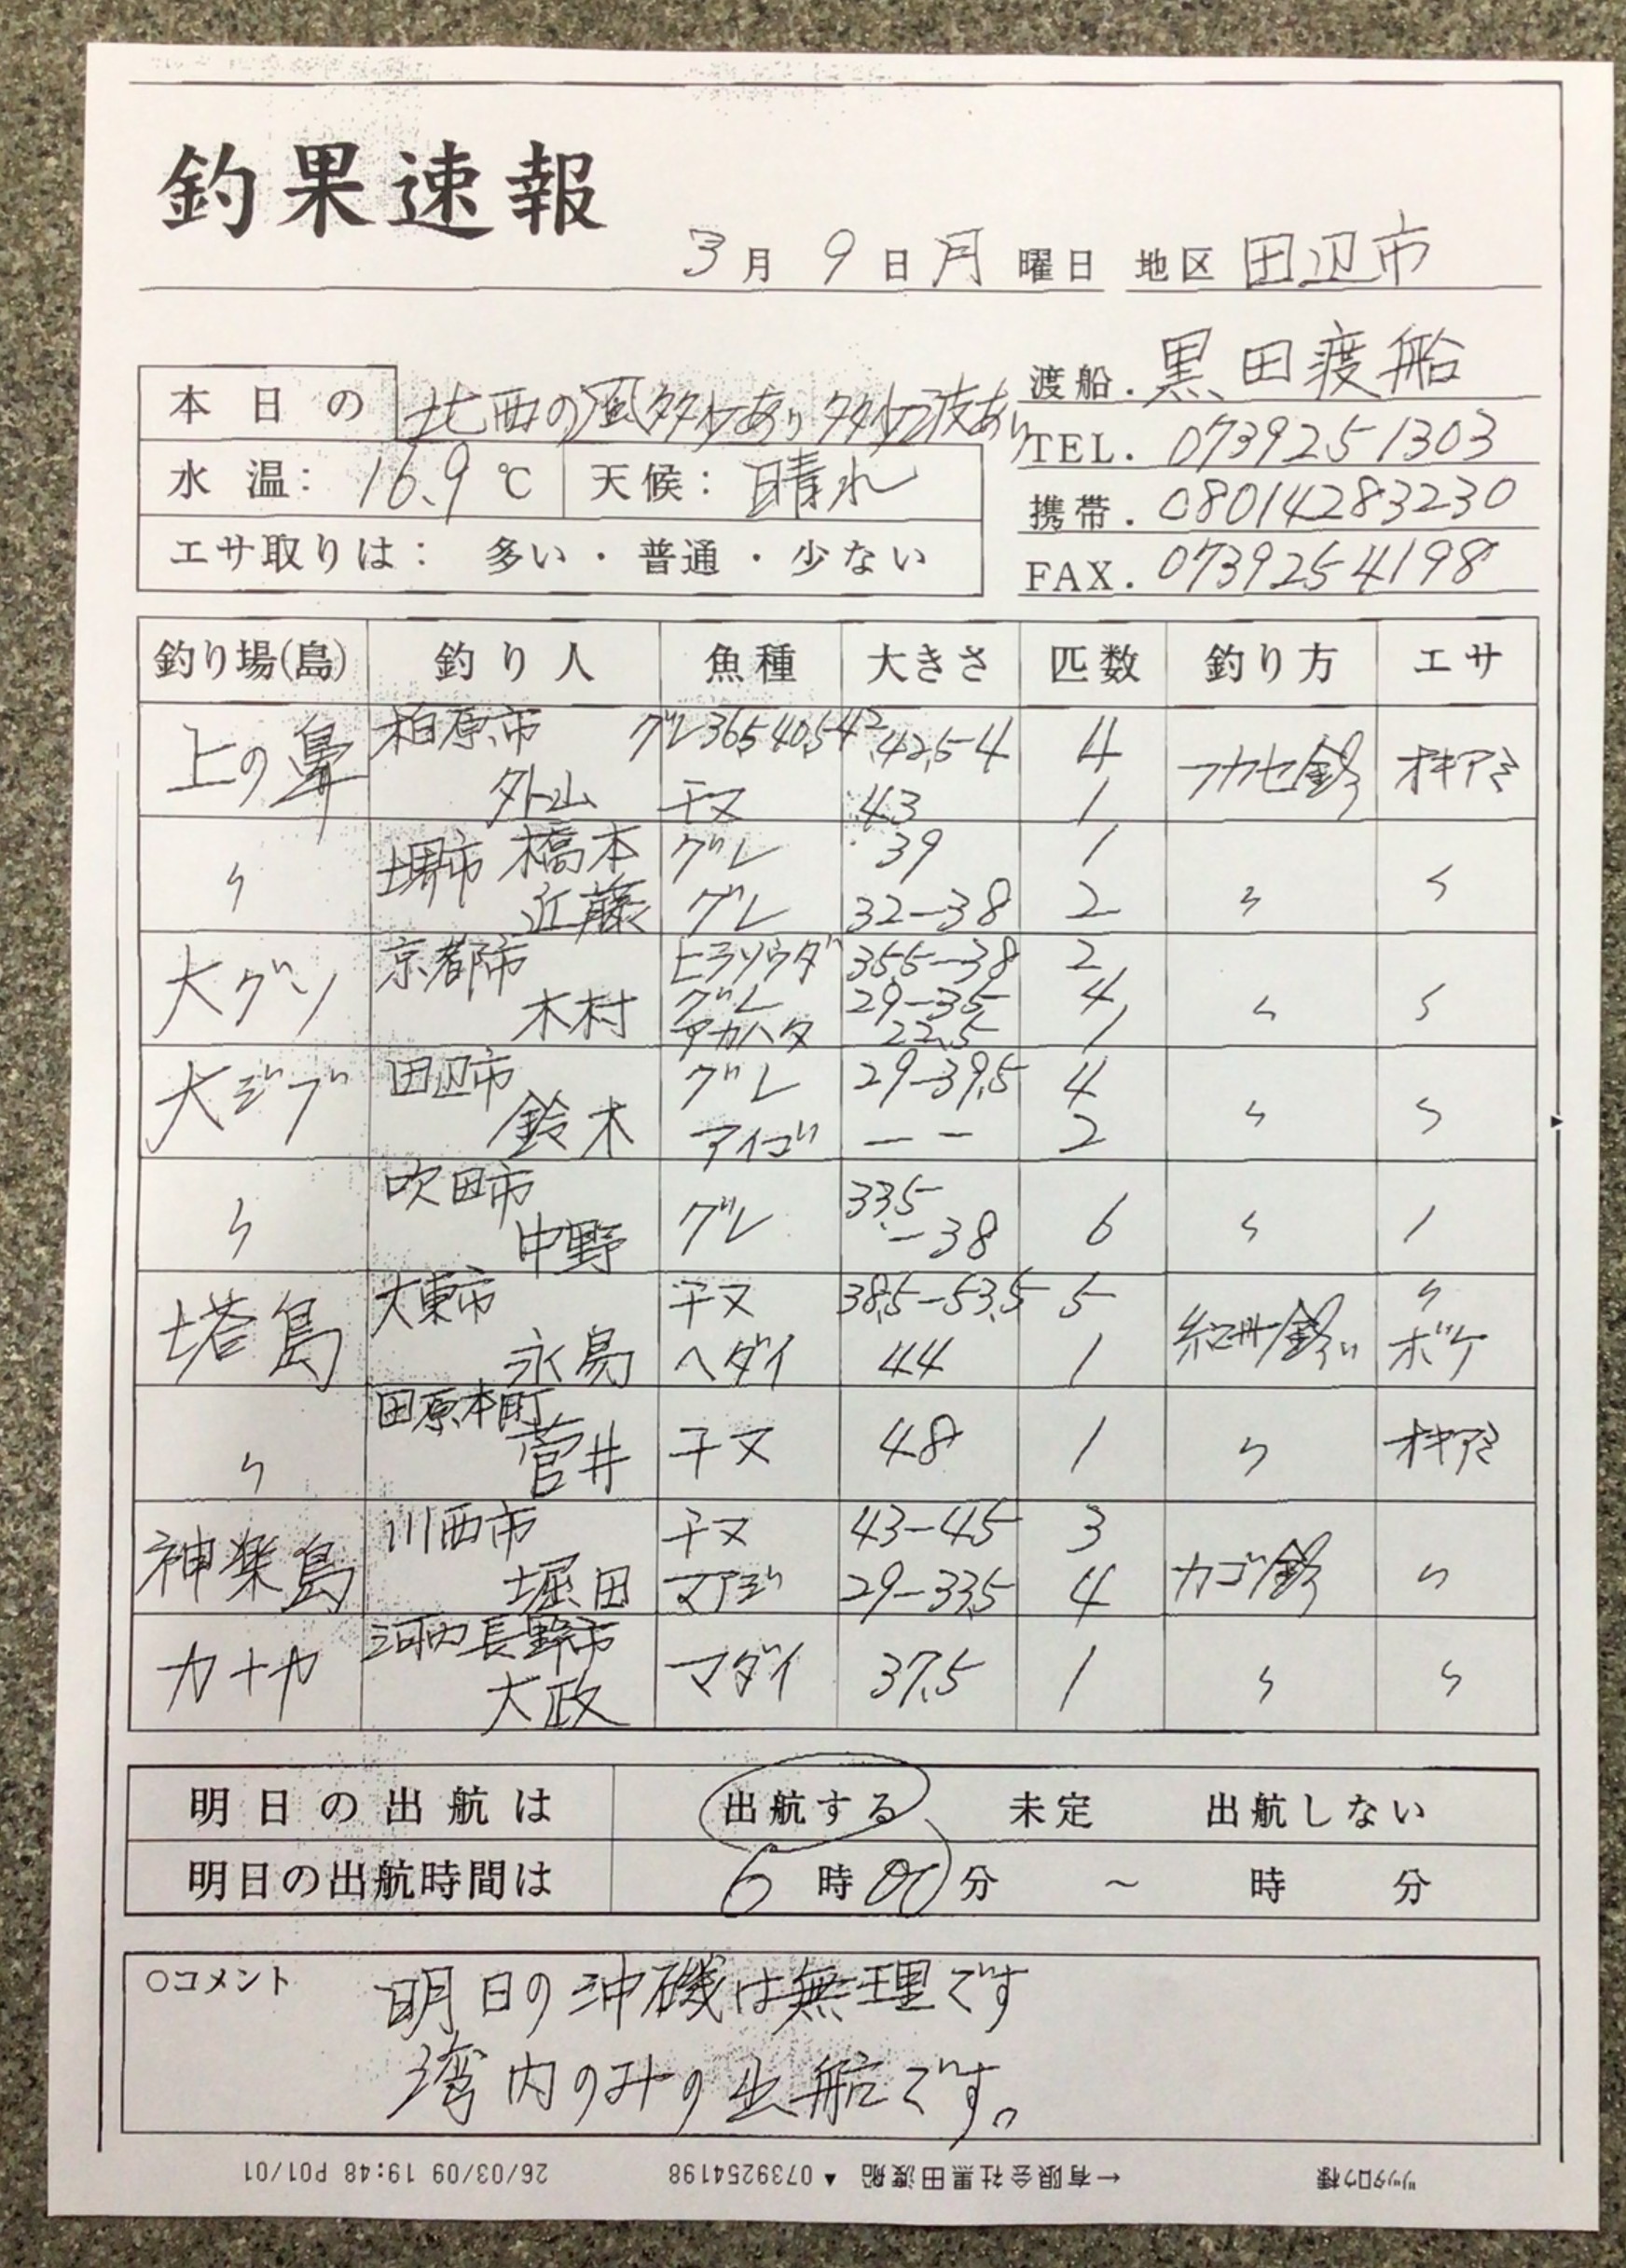 釣果速報
3月 9日 月曜日 地区 田辺市
本日の 北西の風多少あり 多少波あり
水温: 16.9℃ 天候: 晴れ
エサ取りは: 多い・普通・少ない
渡船. 黒田渡船
TEL. 0739251303
携帯. 08014283230
FAX. 0739254198
釣り場(島) 釣り人 魚種 大きさ 匹数 釣り方 エサ
上の鼻 柏原市 グレ 36,5 40,5 42 42,5-4 4 フカセ釣 オキアミ
外山 チヌ 43 1
〃 堺市 橋本 グレ 39 1 〃 〃
近藤 グレ 32-38 2
大グソ 京都市 ヒラソウダ 35,5-38 2 〃 〃
木村 グレ 29-35 4
アカハタ 22,5 1
大ジブ 田辺市 グレ 29-39,5 4 〃 〃
鈴木 アイゴ -- 2
〃 吹田市 中野 グレ 33,5-38 6 〃 〃
塔島 大東市 チヌ 38,5-53,5 5 紀州釣り 〃
永島 ヘダイ 44 1 ボケ
〃 田原本町 菅井 チヌ 48 1 〃 オキアミ
神楽島 川西市 チヌ 43-45 3 カゴ釣 〃
堀田 マアジ 29-33,5 4
カナヤ 河内長野市 大政 マダイ 37,5 1 〃 〃
明日の出航は 出航する 未定 出航しない
明日の出航時間は 6時00分 ~ 時 分
○コメント 明日の沖磯は無理です
湾内のみの出航です。
ツツタロウ様 ←有限会社黒田渡船 ▲ 0739254198 26/03/09 19:48 P01/01